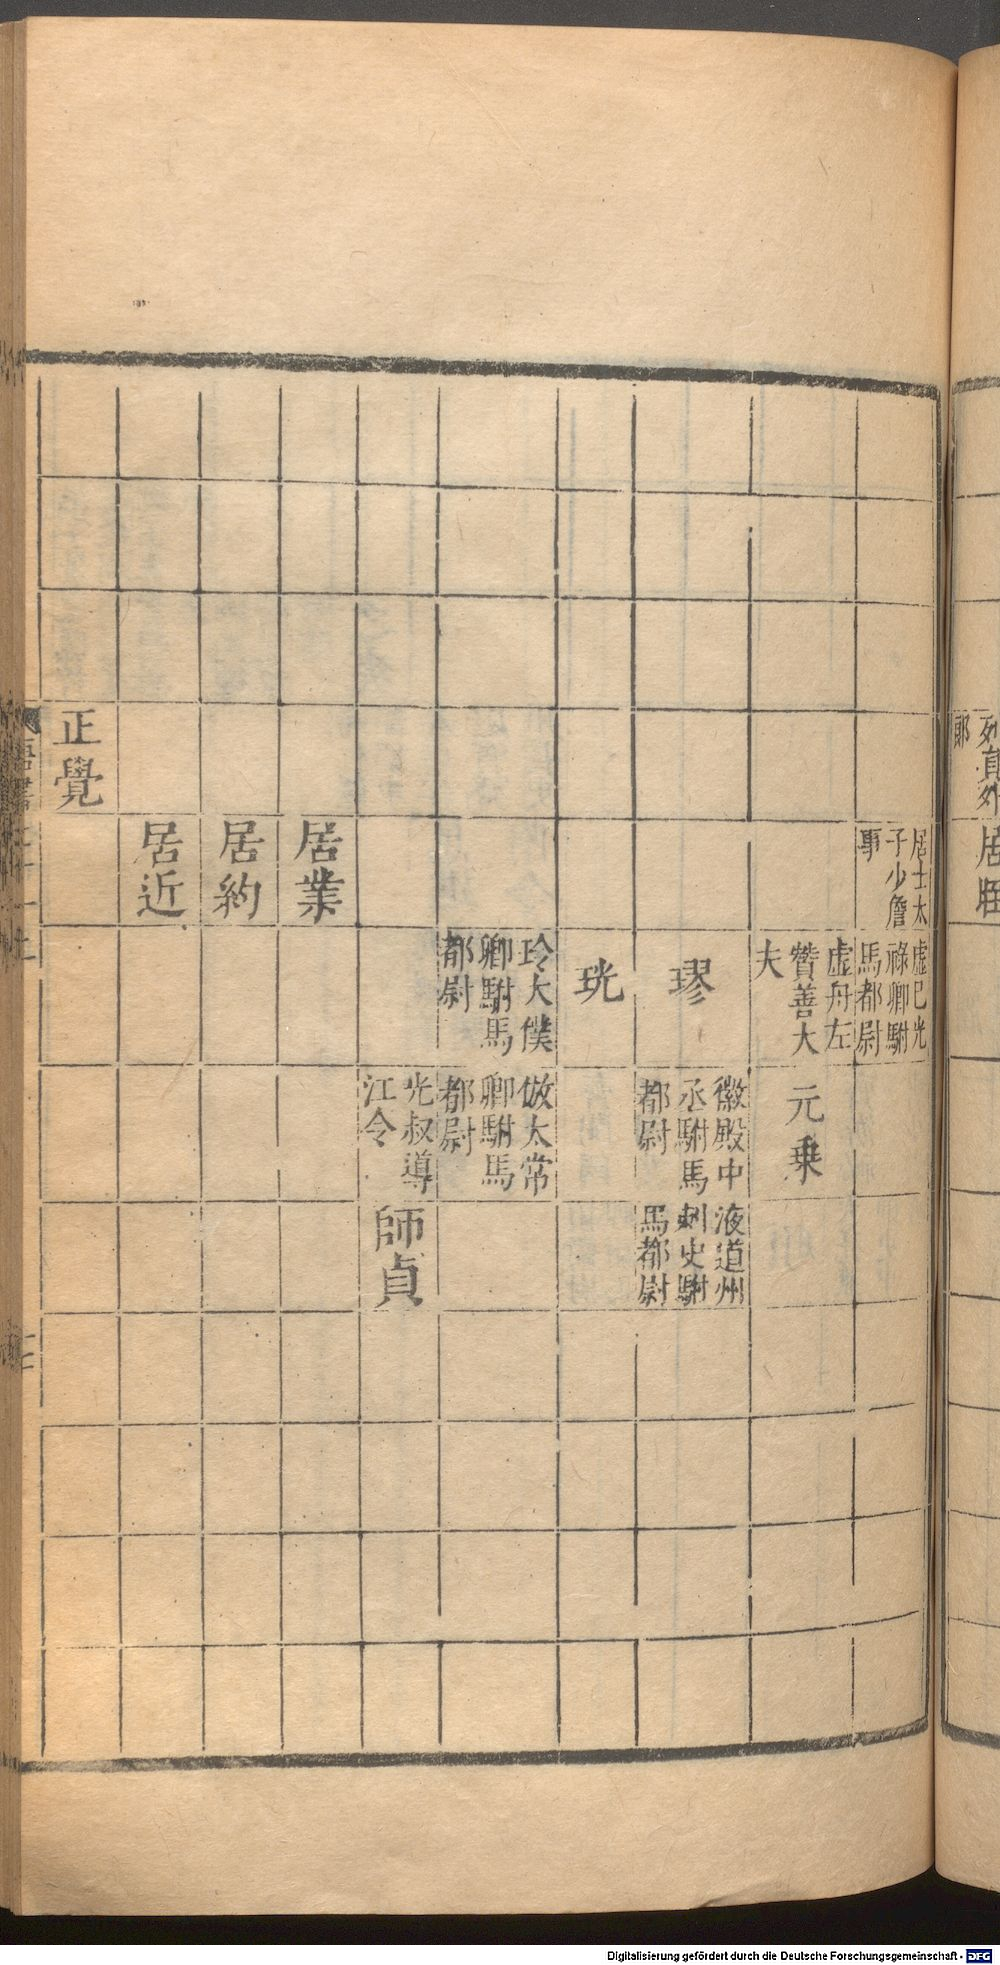 居士太
子少詹
事
虛巳光
祿卿駙
馬都尉
虛舟左
贊善大
夫
元乗
璆
徽殿中
丞駙馬
都尉
液道州
刺史駙
馬都尉
珖
玲大僕
卿駙馬
都尉
倣太常
卿駙馬
都尉
光叔導
江令
師貞
居業
居約
居近
正覺
Digitalisierung gefördert durch die Deutsche Forschungsgemeinschaft - DFG